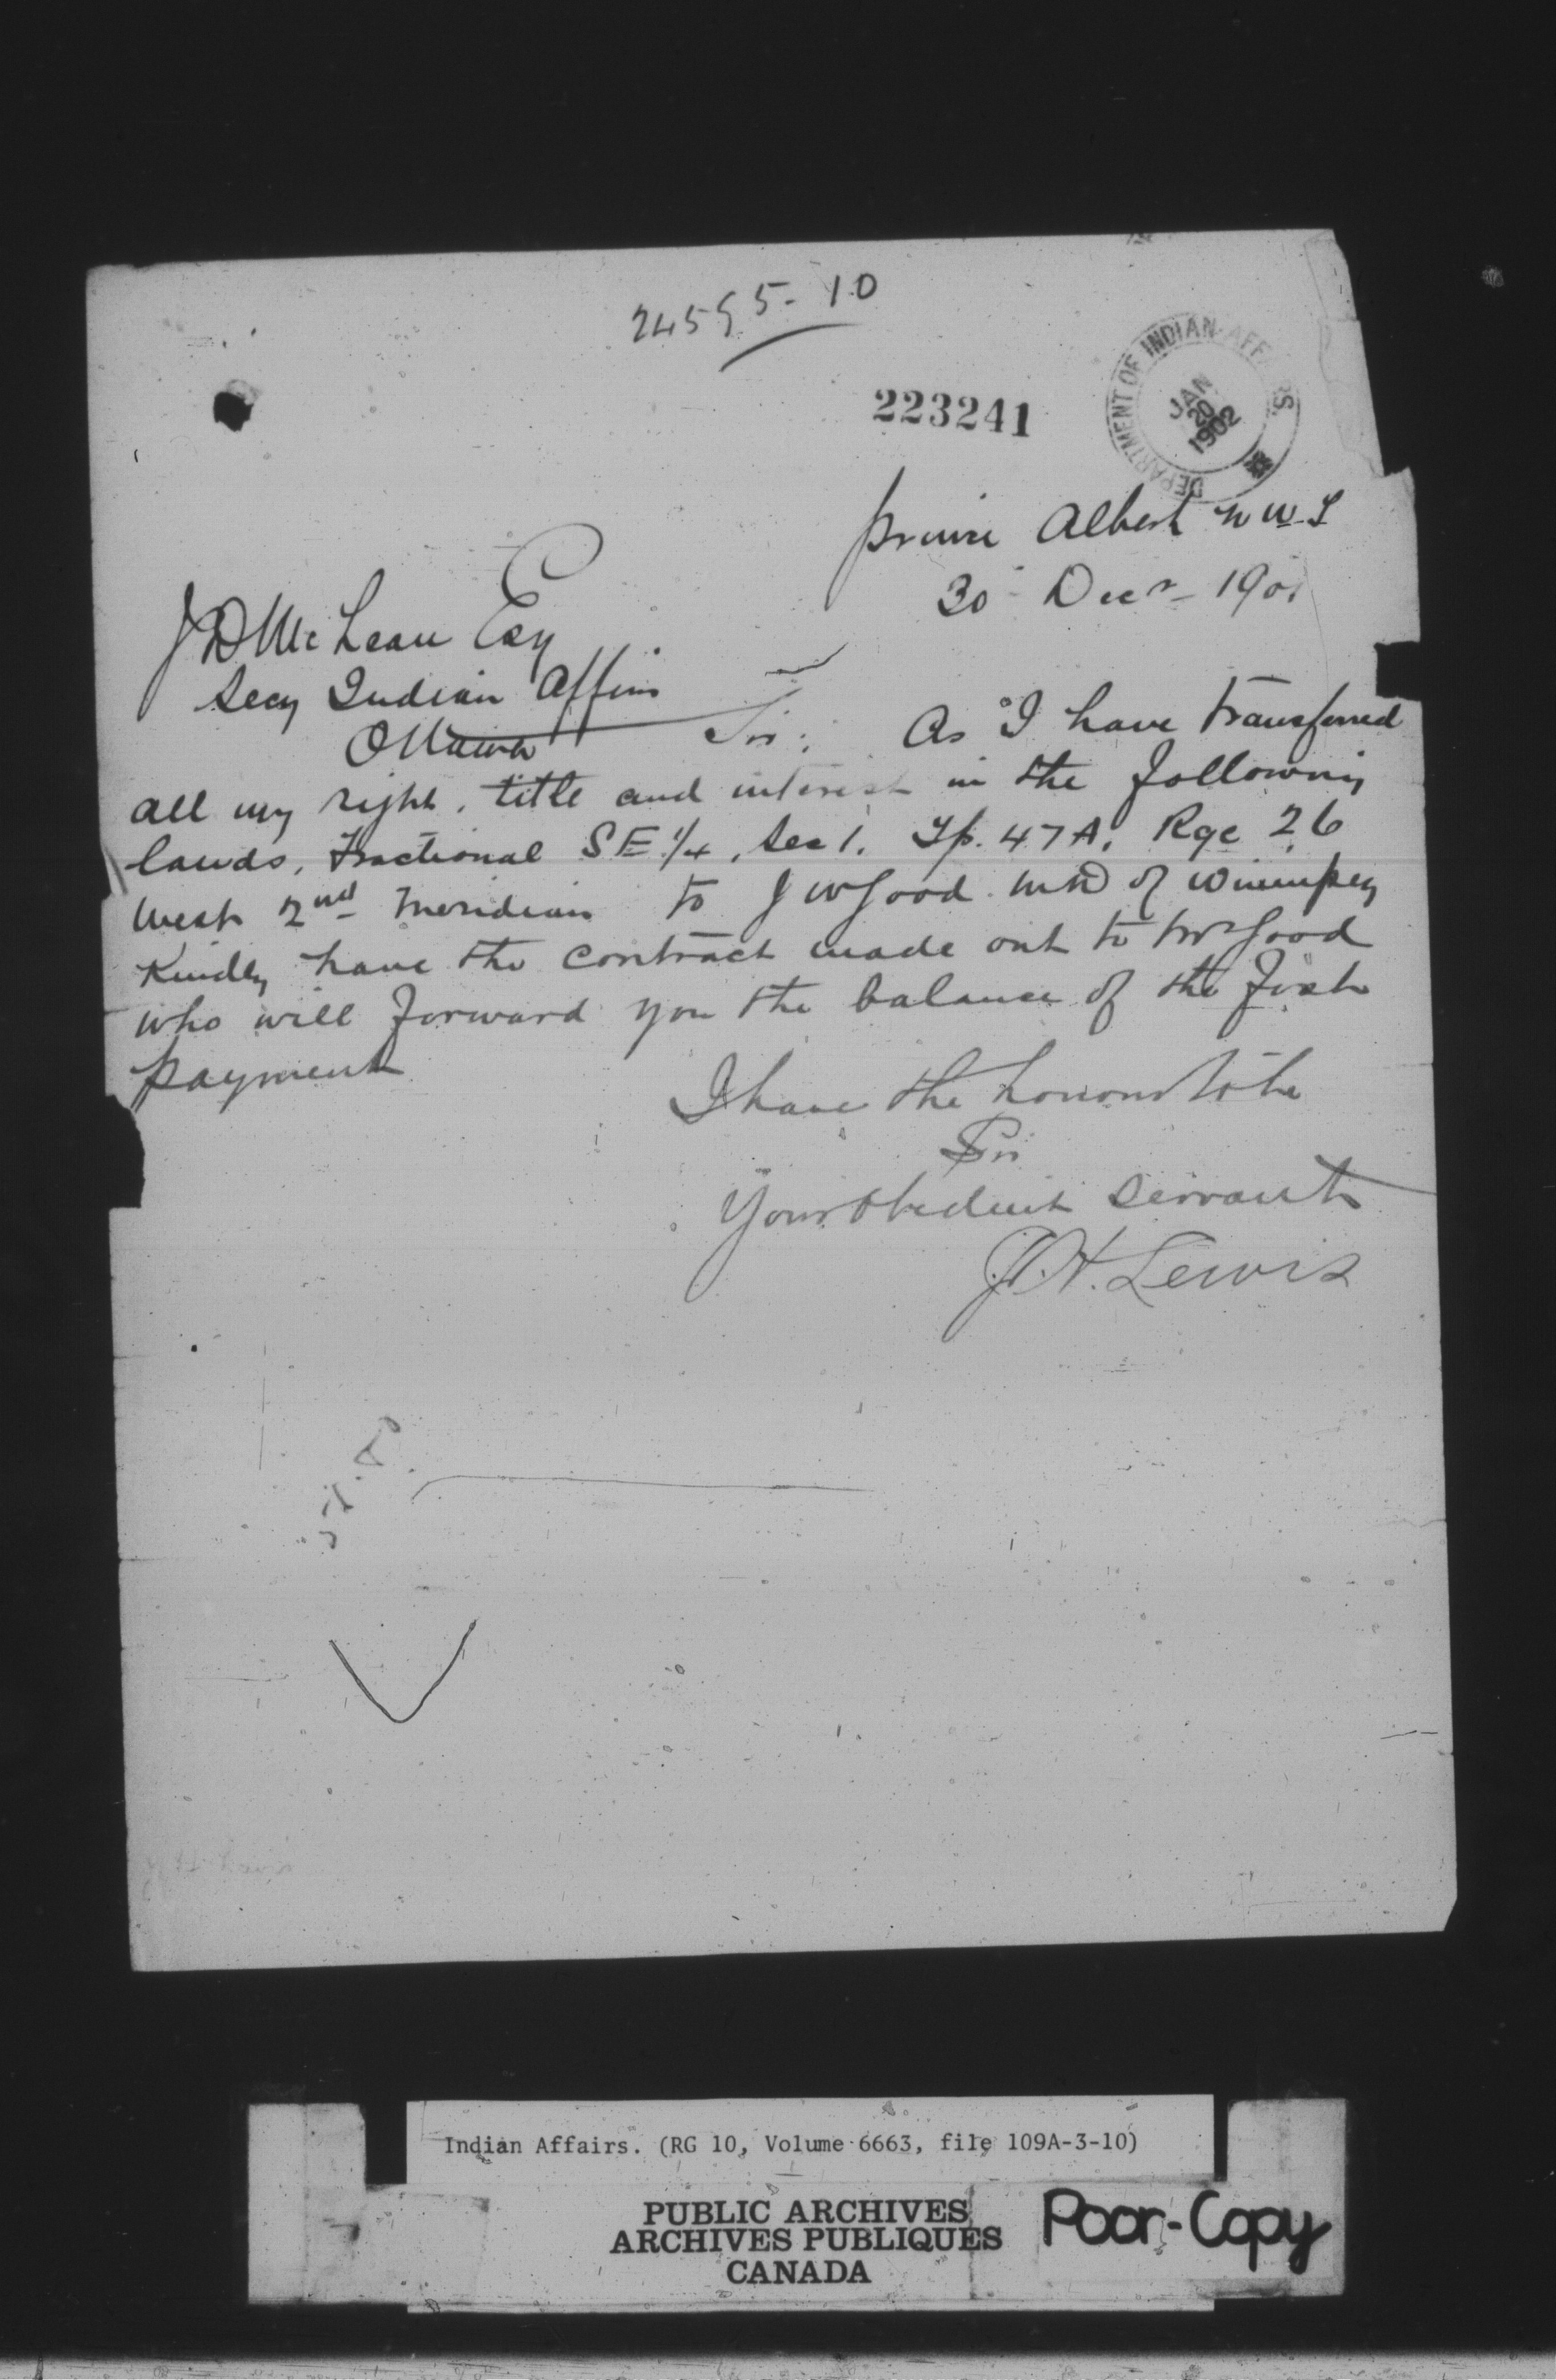 24595-10
223241
DEPARTMENT OF INDIAN AFFAIRS.
JAN
20
1902
Prince Albert N W. T
30 Decr - 1901
J D McLean Esq
Secy Indian Affairs
Ottawa
Sir: As I have transferred
all my right, title and interest in the following
lands, Fractional SE 1/4, Sec 1. Tp. 47A, Rge 26
West 2nd Meridian to J W Good M D of Winnipeg
Kindly have the contract made out to Mr Good
who will forward you the balance of the first
payment
I have the honour to be
Sir
Your obedient servant
J. H. Lewis
Indian Affairs. (RG 10, Volume 6663, file 109A-3-10)
PUBLIC ARCHIVES
ARCHIVES PUBLIQUES
CANADA
Poor-Copy